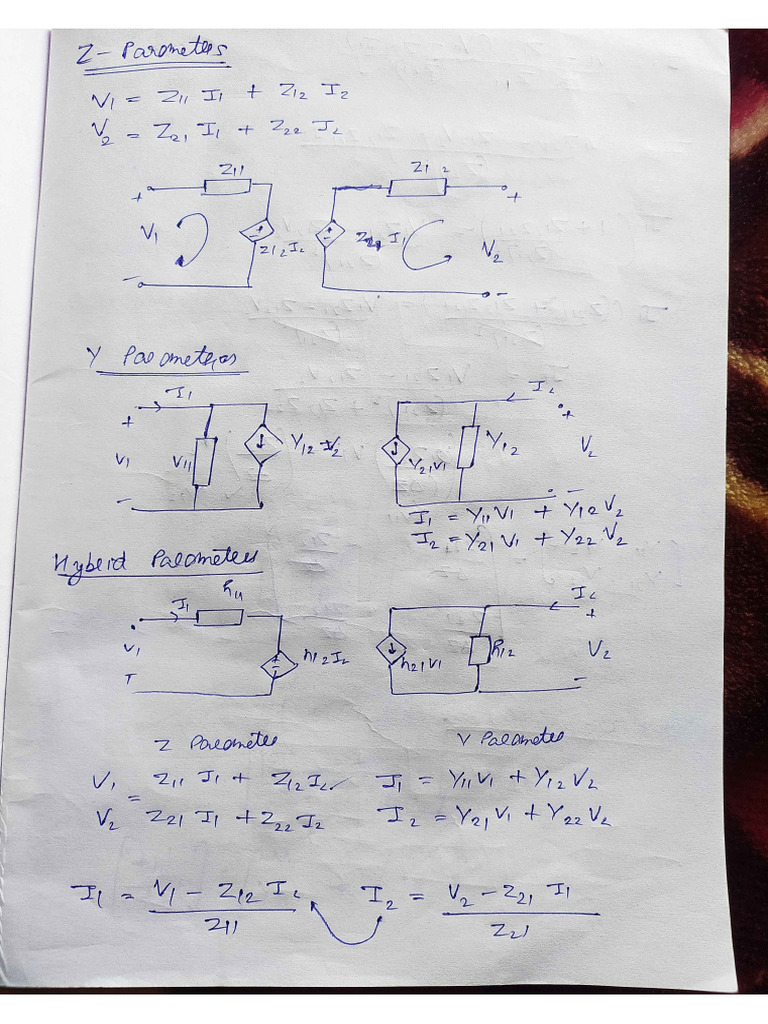 Z-Parameters
V1 = Z11 I1 + Z12 I2
V2 = Z21 I1 + Z22 I2
Z11 Z12
+ +
V1 Z12 I2 I1 V2
- -
Y Parameters
I1 I2
+ +
V1 V11 Y12 V2 Y21V1 Y12 V2
- -
I1 = Y11V1 + Y12V2
I2 = Y21V1 + Y22 V2
Hybrid Parameters
I1 h11 I2
+
V1 h12 I2 h21V1 h12 V2
-
Z Parameter Y Parameter
V1 = Z11 I1 + Z12 I2 I1 = Y11V1 + Y12V2
V2 Z21 I1 + Z22 I2 I2 = Y21V1 + Y22V2
I1 = V1 - Z12 I2 / Z11 I2 = V2 - Z21 I1 / Z21